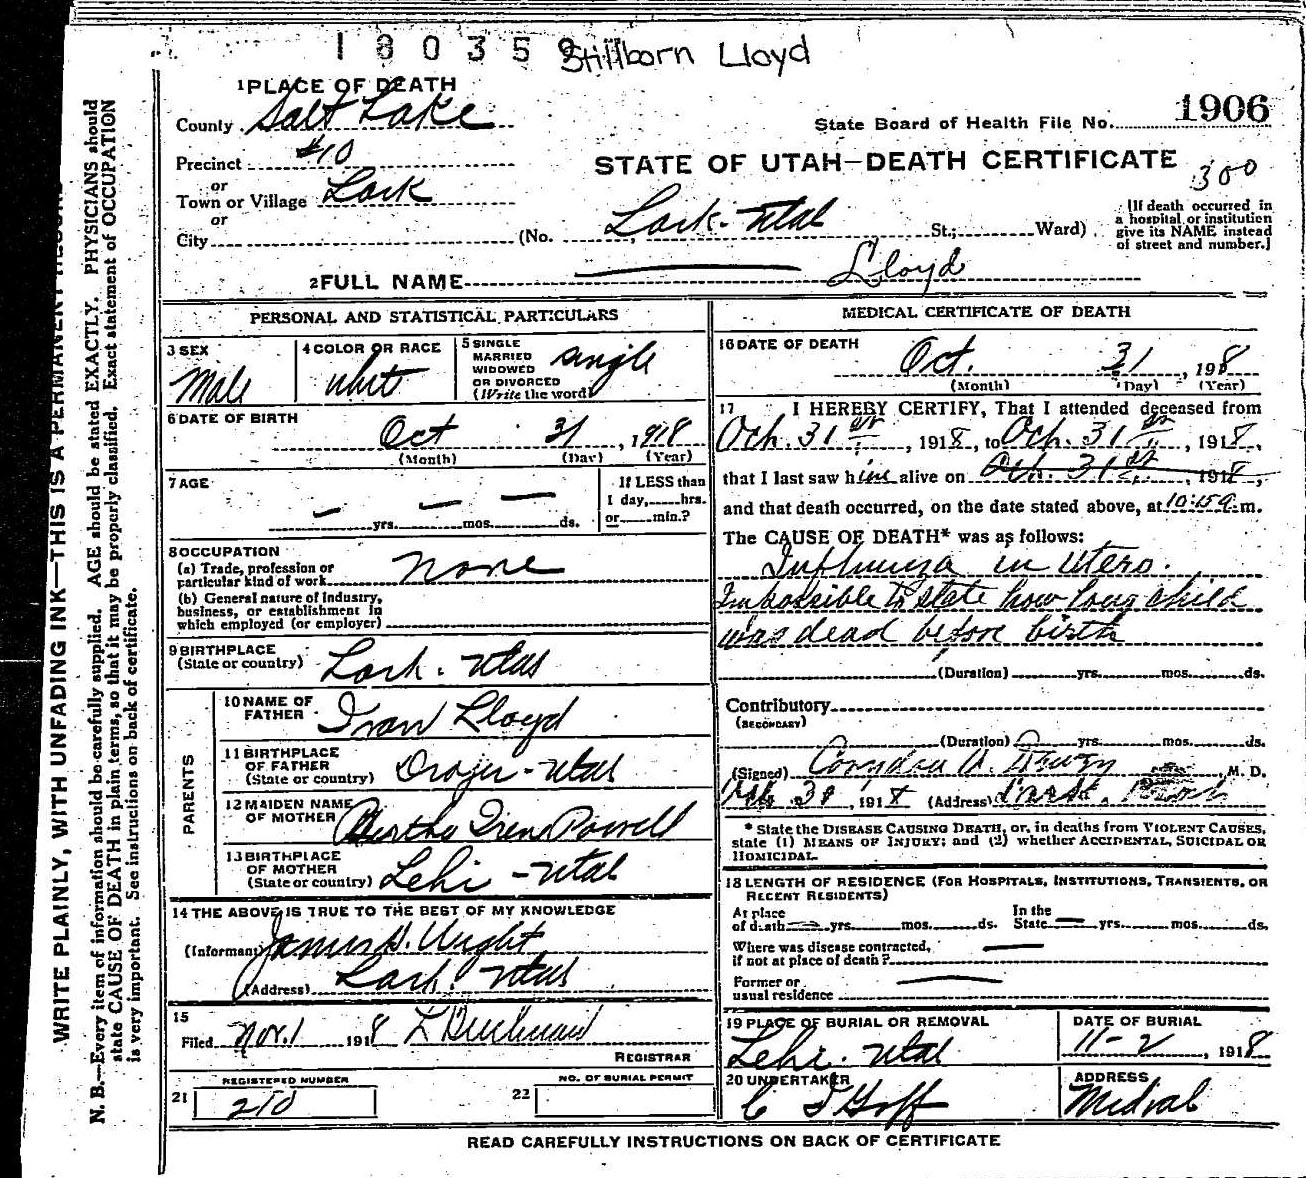 1 8 0 3 5 9 Stillborn Lloyd
1 PLACE OF DEATH
County Salt Lake
State Board of Health File No. 1906
Precinct #10
STATE OF UTAH—DEATH CERTIFICATE
300
or
Town or Village Lark
or
City (No. Lark - Utah St.; Ward)
[If death occurred in
a hospital or institution
give its NAME instead
of street and number.]
2 FULL NAME Lloyd
PERSONAL AND STATISTICAL PARTICULARS
3 SEX Male
4 COLOR OR RACE White
5 SINGLE
MARRIED
WIDOWED
OR DIVORCED
(Write the word) Single
6 DATE OF BIRTH
Oct 31, 1918
(Month) (Day) (Year)
7 AGE
— — —
yrs. mos. ds.
If LESS than
1 day, hrs.
or min.?
8 OCCUPATION
(a) Trade, profession or
particular kind of work None
(b) General nature of industry,
business, or establishment in
which employed (or employer)
9 BIRTHPLACE
(State or country) Lark. Utah
PARENTS
10 NAME OF
FATHER Ivan Lloyd
11 BIRTHPLACE
OF FATHER
(State or country) Draper - Utah
12 MAIDEN NAME
OF MOTHER Bertha Irene Powell
13 BIRTHPLACE
OF MOTHER
(State or country) Lehi - Utah
14 THE ABOVE IS TRUE TO THE BEST OF MY KNOWLEDGE
(Informant) James H. Wight
(Address) Lark. Utah
15
Filed Nov. 1 1918
REGISTRAR
REGISTERED NUMBER
21 210
NO. OF BURIAL PERMIT
22
MEDICAL CERTIFICATE OF DEATH
16 DATE OF DEATH
Oct. 31, 1918
(Month) (Day) (Year)
17 I HEREBY CERTIFY, That I attended deceased from
Oct. 31 st, 1918, to Oct. 31 st, 1918,
that I last saw him alive on Oct. 31 st, 1918,
and that death occurred, on the date stated above, at 10:15 a. m.
The CAUSE OF DEATH* was as follows:
Influenza in Utero.
Impossible to state how long child
was dead before birth
(Duration) yrs. mos. ds.
Contributory
(SECONDARY)
(Duration) yrs. mos. ds.
(Signed) M. D.
1918 (Address)
* State the DISEASE CAUSING DEATH, or, in deaths from VIOLENT CAUSES,
state (1) MEANS OF INJURY; and (2) whether ACCIDENTAL, SUICIDAL OR
HOMICIDAL.
18 LENGTH OF RESIDENCE (FOR HOSPITALS, INSTITUTIONS, TRANSIENTS, OR
RECENT RESIDENTS)
At place
of death yrs. mos. ds.
In the
State yrs. mos. ds.
Where was disease contracted,
if not at place of death?
Former or
usual residence
19 PLACE OF BURIAL OR REMOVAL
Lehi. Utah
DATE OF BURIAL
11-2, 1918
20 UNDERTAKER
Goff
ADDRESS
Midval
READ CAREFULLY INSTRUCTIONS ON BACK OF CERTIFICATE
WRITE PLAINLY, WITH UNFADING INK—THIS IS A PERMANENT RECORD
N. B.—Every item of information should be carefully supplied. AGE should be stated EXACTLY. PHYSICIANS should
state CAUSE OF DEATH in plain terms, so that it may be properly classified. Exact statement of OCCUPATION
is very important. See instructions on back of certificate.